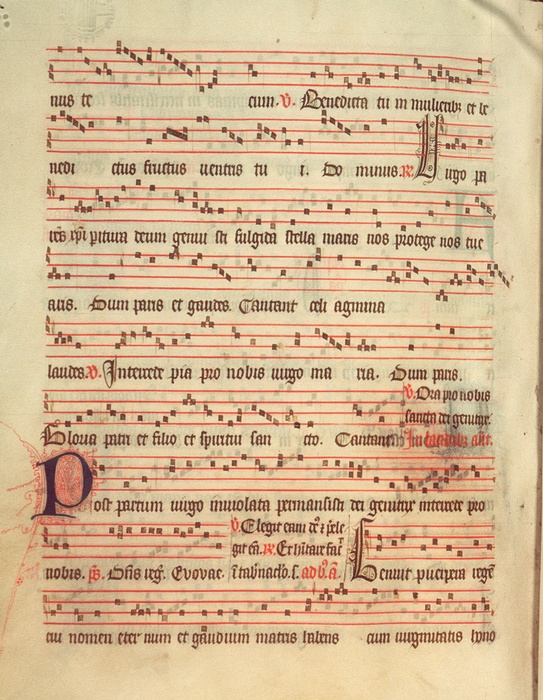 nus te cum. V. Benedicta tu in mulieribꝫ et be
nedi ctus fructus uentris tu i. Do minus. R. Virgo pa
rens xpi paritura deum genui sti fulgida stella maris nos protege nos tue
aris. Dum paris et gaudes. Cantant celi agmina
laudes. V. Intercede pia pro nobis uirgo ma ria. Dum paris.
V. Ora pro nobis
sancta dei genitrix.
Gloria patri et filio et spiritui san cto. Cantant. In laudibus
Post partum uirgo inuiolata permansisti dei genitrix intercede pro
V. Elegit eam
nobis. ps. Evovae. ad b. a. Genuit puerpera rege
cui nomen eter num et gaudium matris habens cum uirginitatis hono